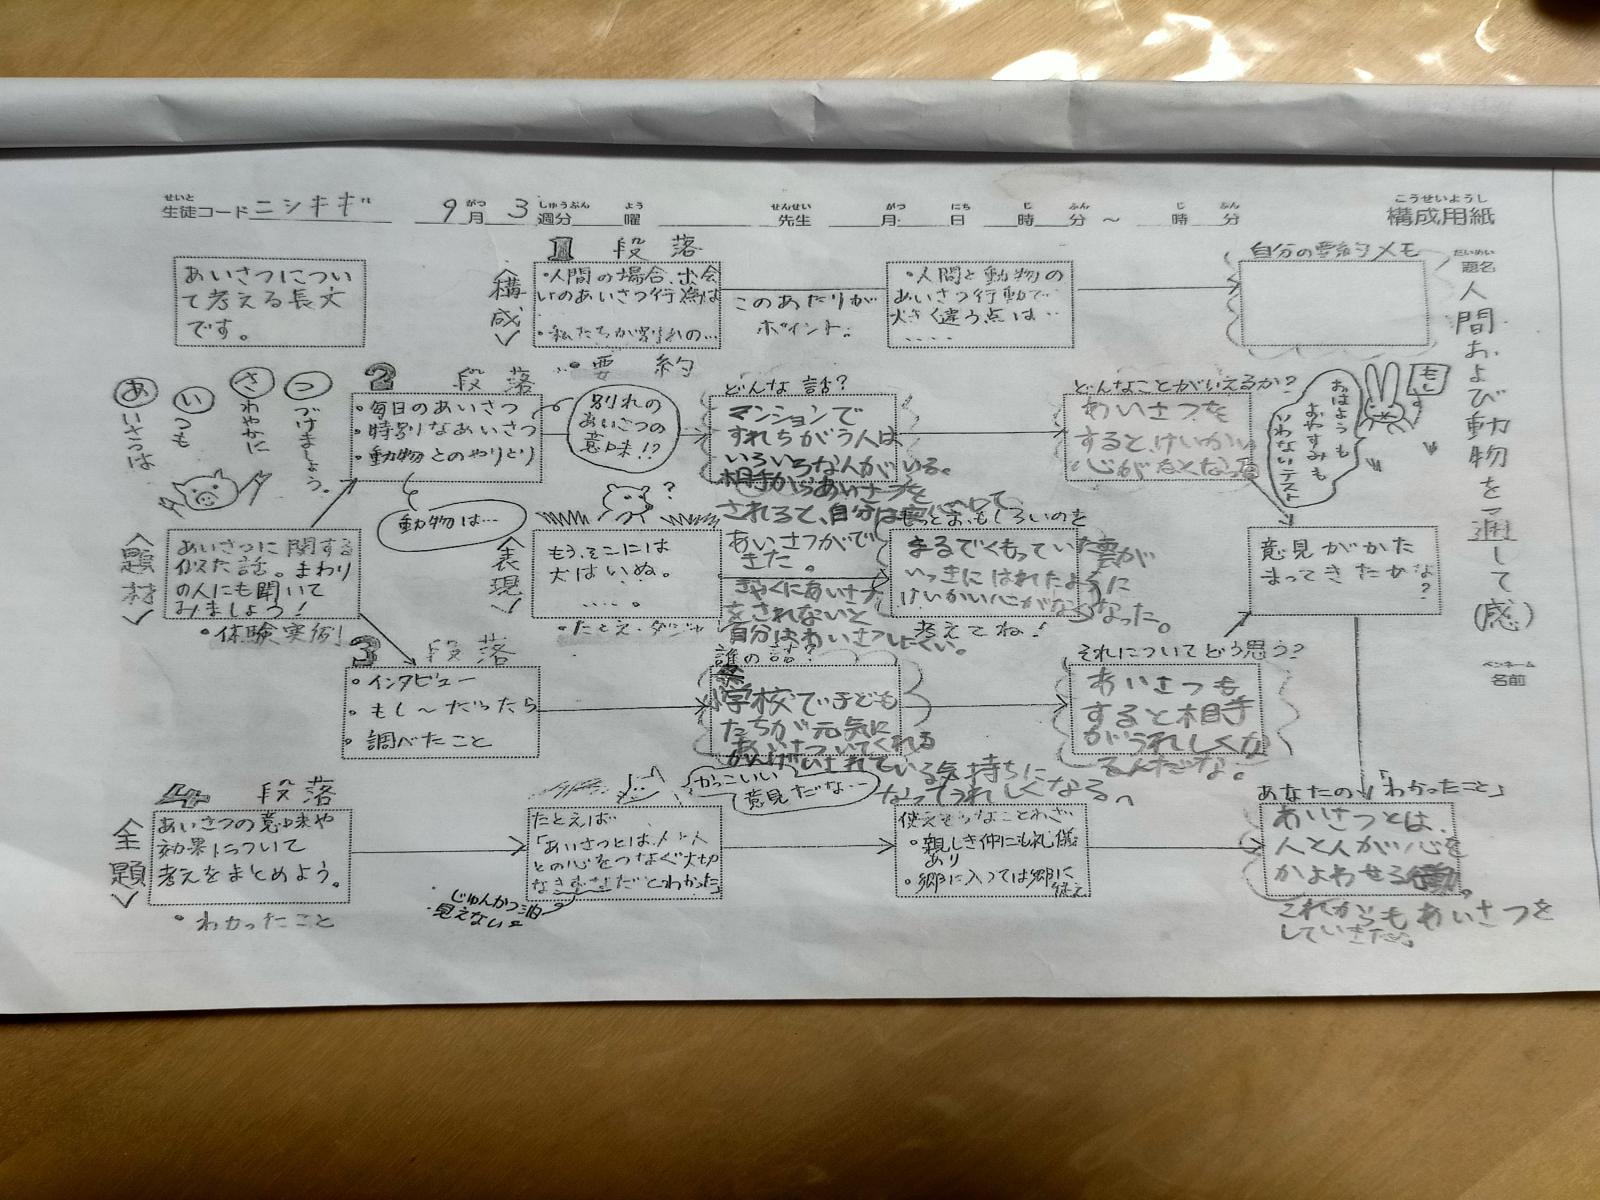 せいと
生徒コード ニシキギ 9月 3週分 曜 先生 月 日 時 分 ～ 時 分
がつ しゅうぶん よう せんせい がつ にち じ ふん じ ふん
こうせいようし
構成用紙
だいめい
題名
人間および動物を通して(感)
ペンネーム
名前
あいさつについ
て考える長文
です。
1 段落
〈構成〉
・人間の場合、出会
いのあいさつ行為は
・私たちが別れの…
・要約
このあたりが
ポイント。
・人間と動物の
あいさつ行動で
大きく違う点は…
....
自分の要約メモ
あいさつは
いつも
さわやかに
つづけましょう。
2 段落
・毎日のあいさつ
・特別なあいさつ
・動物とのやりとり
別れの
あいさつの
意味!?
動物は…
どんな話?
マンションで
すれちがう人は
いろいろな人がいる。
相手からあいさつを
されると、自分は
あいさつがで
きた。
ぎゃくにあいさつ
をされないと
自分はあいさつしにくい。
どんなことがいえるか?
あいさつを
すると、けいかい
心がなくなる
もし
おはようも
おやすみも
いわないテスト
〈題材〉
あいさつに関する
似た話。まわり
の人にも聞いて
みましょう!
・体験実例!
〈表現〉
もう、そこには
犬はいぬ。
....。
・たとえ・ダジャ
?
もっとおもしろいのを
まるでくもっていた雲が
いっきにはれたように
けいかい心がなくなった。
考えてね!
意見がかた
まってきたかな?
3 段落
・インタビュー
・もし～だったら
・調べたこと
誰の話?
学校で子ども
たちが元気に
あいさつしてくれる
かんげいされている気持ちに
なってうれしくなる。
それについてどう思う?
あいさつも
すると相手
がうれしくな
るんだな。
4 段落
〈全題〉
あいさつの意味や
効果について
考えをまとめよう。
・わかったこと
かっこいい
意見だな…
たとえば
「あいさつとは、人と人
との心をつなぐ大切
とわかった」
じゅんかつ油
見えない
使えそうなことわざ
・親しき仲にも礼儀
あり
・郷に入っては郷に
従え
あなたの「わかったこと」
あいさつとは、
人と人が心を
かよわせる
これからもあいさつを
していきたい。